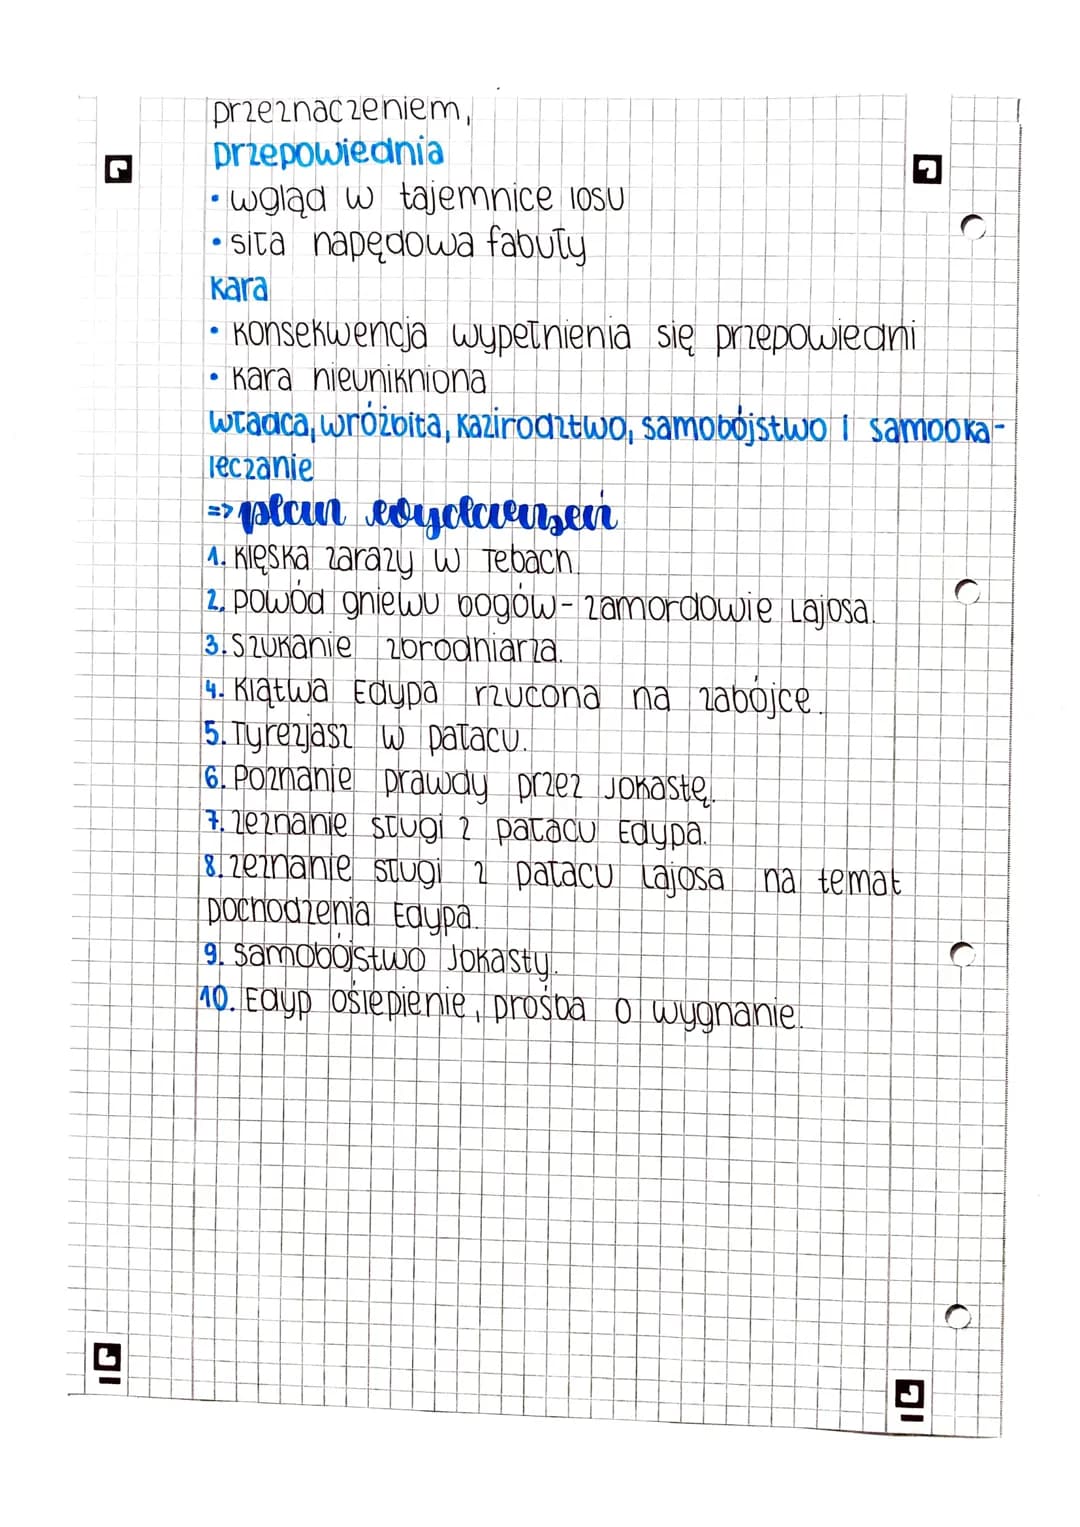 przeznaczeniem,
przepowiednia
• wgląd w tajemnice losu
• siła napędowa fabuły
kara
• konsekwencja wypełnienia się przepowiedni
• kara nieunikniona
władca, wróżbita, kazirodztwo, samobójstwo i samooka-
leczanie
=> plan wydarzeń
1. Klęska zarazy w Tebach.
2. powód gniewu bogów - zamordowie Lajosa.
3. Szukanie zbrodniarza.
4. Klątwa Edypa rzucona na zabójcę.
5. Tyrezjasz w pałacu.
6. Poznanie prawdy przez Jokastę.
7. zeznanie sługi z pałacu Edypa.
8. zeznanie sługi z pałacu Lajosa na temat
pochodzenia Edypa.
9. samobójstwo Jokasty.
10. Edyp oślepienie, prośba o wygnanie.